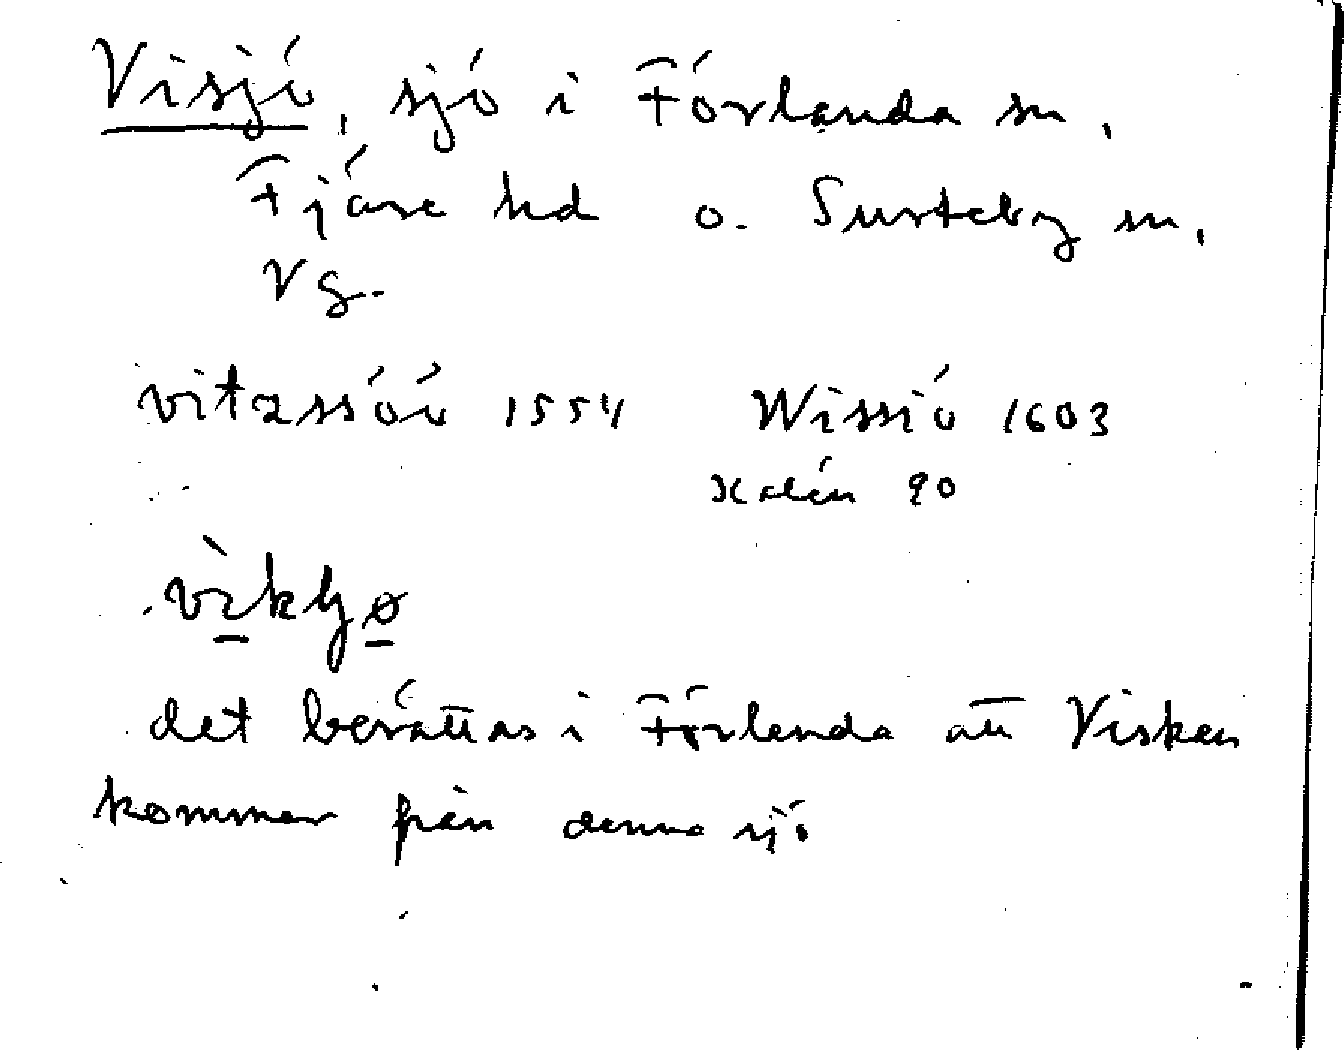 Visjö, sjö i Förlanda sn,
Fjäre hd o. Surteby sn,
Vg.
vitzssöö 1554 Wissiö 1603
Kalén 90
det berättas i Förlanda att Viskan
kommer från denna sjö